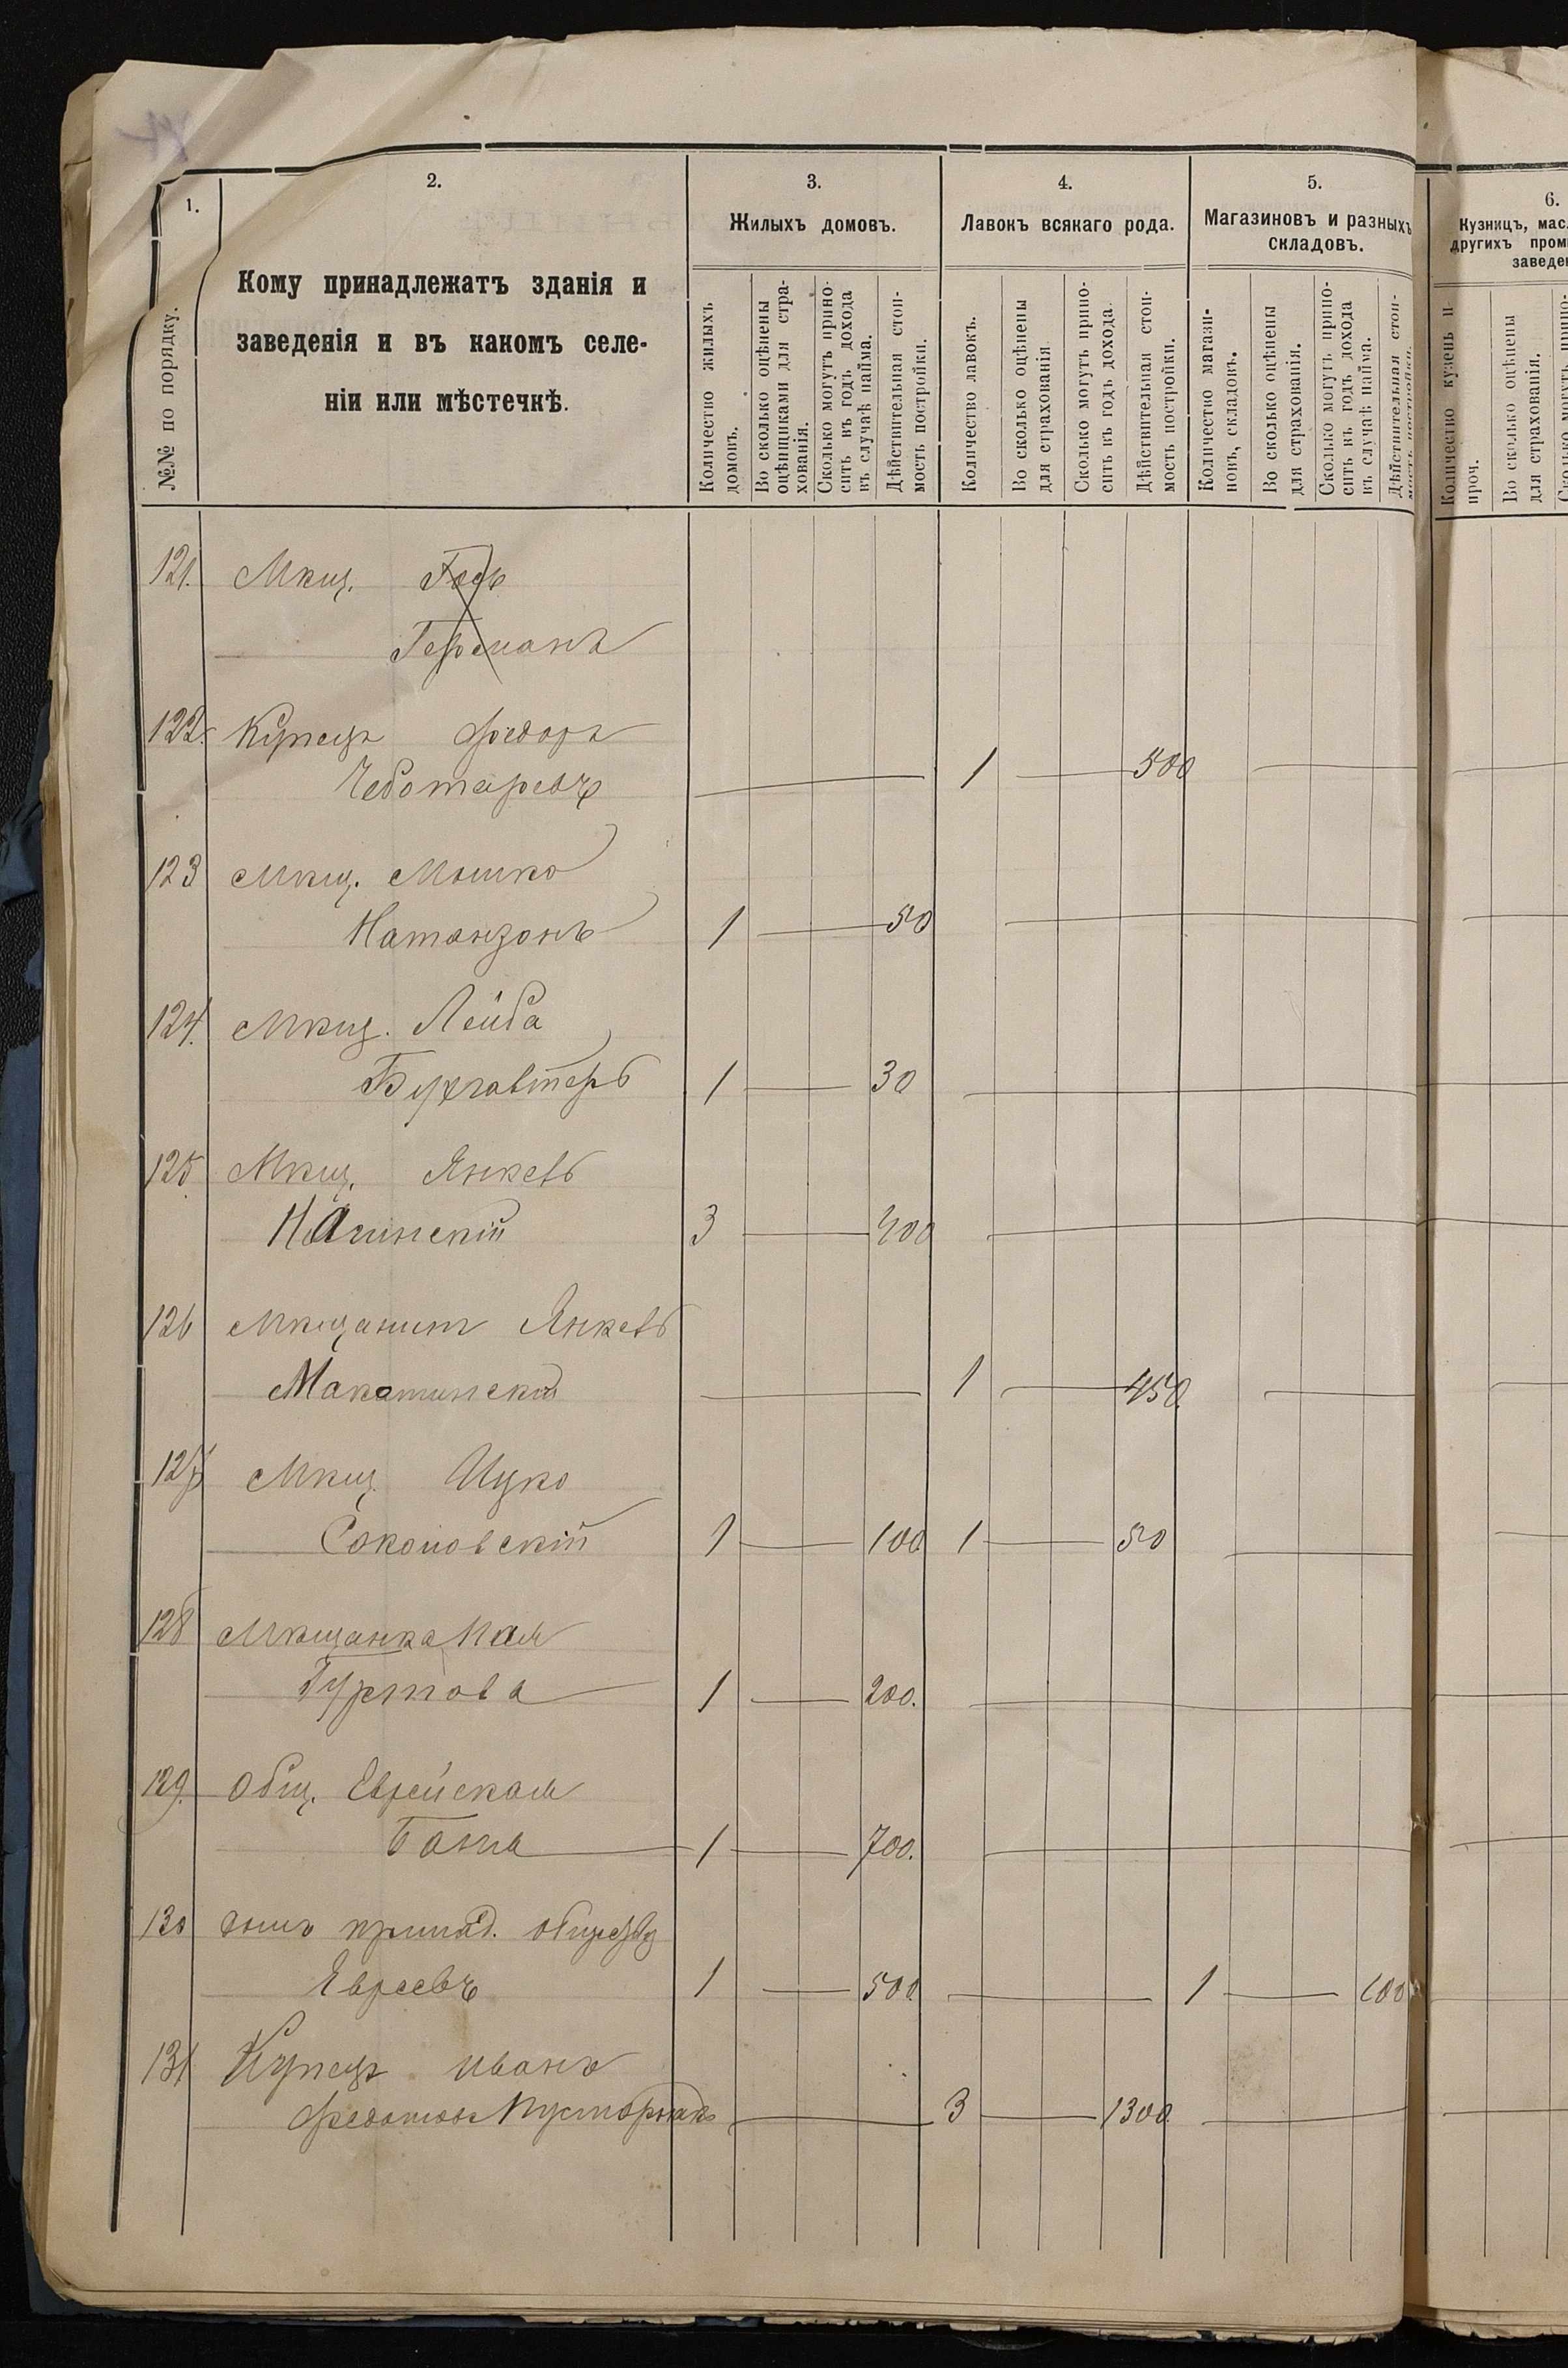 1.
2.
3.
4.
5.
6.
№№ по порядку.
Кому принадлежатъ зданія и
заведенія и въ какомъ селе-
ніи или мѣстечкѣ.
Жилыхъ домовъ.
Количество жилыхъ
домовъ.
Во сколько оцѣнены
оцѣнщиками для стра-
хованія.
Сколько могутъ прино-
сить въ годъ дохода
въ случаѣ найма.
Дѣйствительная стои-
мость постройки.
Лавокъ всякаго рода.
Количество лавокъ.
Во сколько оцѣнены
для страхованія
Сколько могутъ прино-
сить въ годъ дохода.
Дѣйствительная стои-
мость постройки.
Магазиновъ и разныхъ
складовъ.
Количество магази-
новъ, складовъ.
Во сколько оцѣнены
для страхованія.
Сколько могутъ прино-
сить въ годъ дохода
въ случаѣ найма.
Дѣйствительная стои-
мость постройки.
Кузницъ, мас
другихъ пром
заведе
Количество кузень и
проч.
Во сколько оцѣнены
для страхованія.
Сколько могутъ прино-
121. Мѣщ.
Германъ
122. Купецъ Федоръ
Чеботаревъ 1 500
123 Мѣщ. Мошко
Натанзонъ 1 50
124. Мѣщ. Лейба
Бухгалтеръ 1 30
125 Мѣщ. Янкель
3 400
126 Мѣщанинъ Янкель
1 450
127 Мѣщ. Ицко
Соколовскій 1 100 1 50
128 Мѣщанка
Гуртова 1 200.
129. Общ. Еврейская
Баня 1 700.
130 домъ принад. обществу
Евреевъ 1 500 1 100
131 Купецъ Иванъ
3 1300